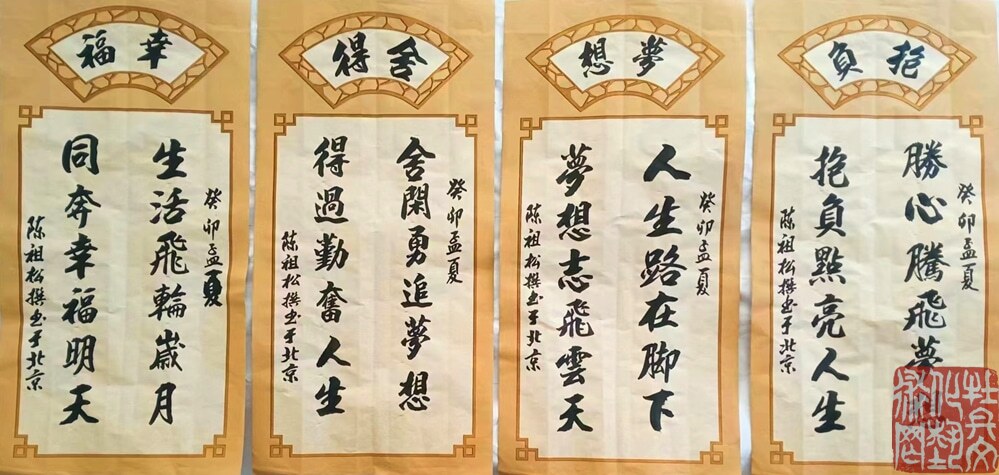 抱負
癸卯孟夏
勝心騰飛夢
抱負點亮人生
陈祖松撰书于北京
夢想
癸卯孟夏
人生路在脚下
夢想志飛雲天
陈祖松撰书于北京
舍得
癸卯孟夏
舍閑勇追夢想
得過勤奮人生
陈祖松撰书于北京
幸福
癸卯孟夏
生活飛輪歲月
同奔幸福明天
陈祖松撰书于北京